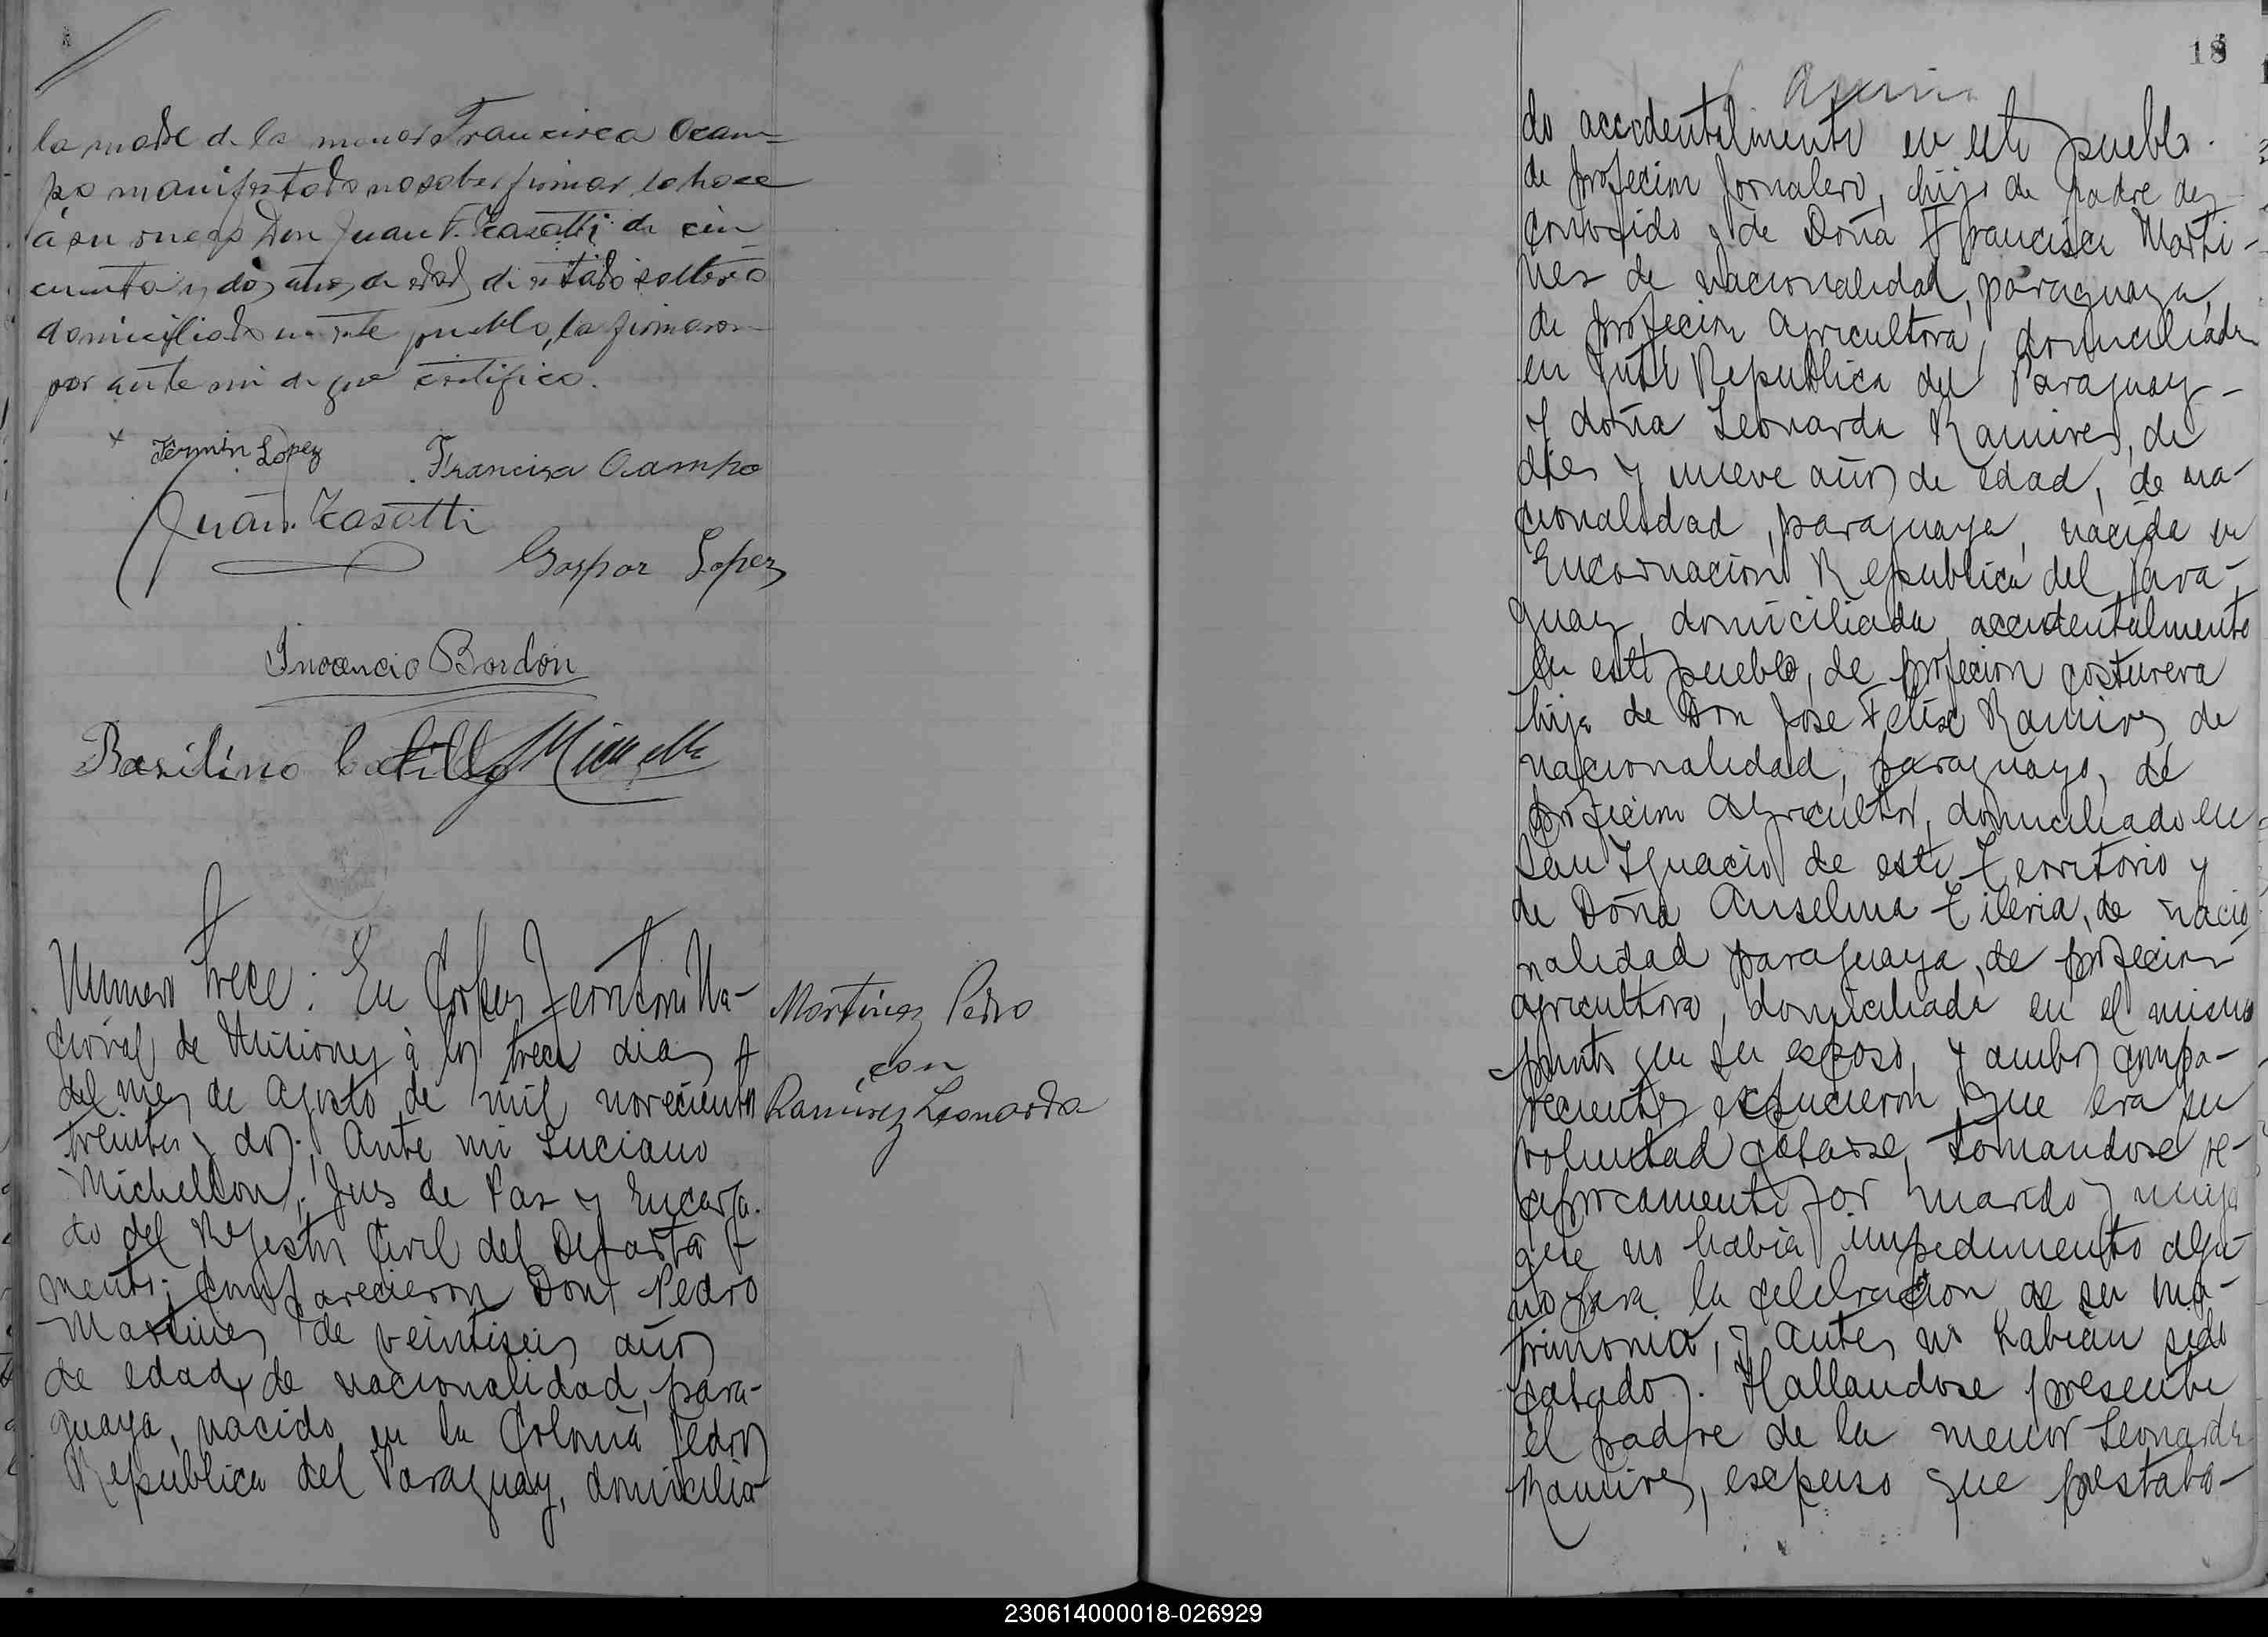 la madre de la menor Francisca Ocam=
po manifestado no saber firmar lo hace
á su ruego Don Juan F. Zasatti de cin-
cuenta y dos años de edad de estado soltero
domiciliado en este pueblo, la firmaron
por ante mi de que certifico.
Fermin Lopez
Francisca Ocampo
Juan Zasatti
Gaspar Lopez
Inocencio Bordon
Basilino
Numero trece: En Corpus Territorio Na-
cional de Misiones à los trece dias
del mes de Agosto de mil novecientos
treinta y dos; Ante mi Luciano
Michelson, Jues de Pas y Encarga-
do del Rejistro Civil del Departa
mento; comparecieron Don Pedro
Martines de veintiseis años
de edad, de nacionalidad, para-
guaya, nacido en la Colonia
Republica del Paraguay, domicilia-
Martinez Pedro
con
Ramirez Leonarda
18
do accidentalmente en este pueblo.
de profecion Jornalero, hijo de padre des
conosido y de Doña Francisca Marti-
nes de nacionalidad, paraguaya,
de profecion agricultora, domiciliada
en Yuti Republica del Paraguay-
y doña Leonarda Ramires, de
dies y nueve años de edad, de na-
cionalidad, paraguaya, nacida en
Encarnacion Republica del Para-
guay, domiciliada accidentalmente
en este pueblo, de profecion costurera
hija de Don Jose Felise Ramires, de
nacionalidad, paraguayo, de
profecion Agricultor, domiciliado en
San Ygnacio de este Territorio y
de Doña Anselma Tileria, de nacio
nalidad paraguaya, de profecion
agricultora, domiciliada en el mismo
punto que su esposo, y ambos compa-
recientes expucieron que era su
voluntad casarse, tomandose re-
ciprocamente por marido y mujer
que no habia impedimento algu-
no para la celebracion de su ma-
trimonio, y antes no habian sido
casados. Hallandose presente
el padre de la menor Leonarda
Ramires, esepuso que prestaba-
230614000018-026929